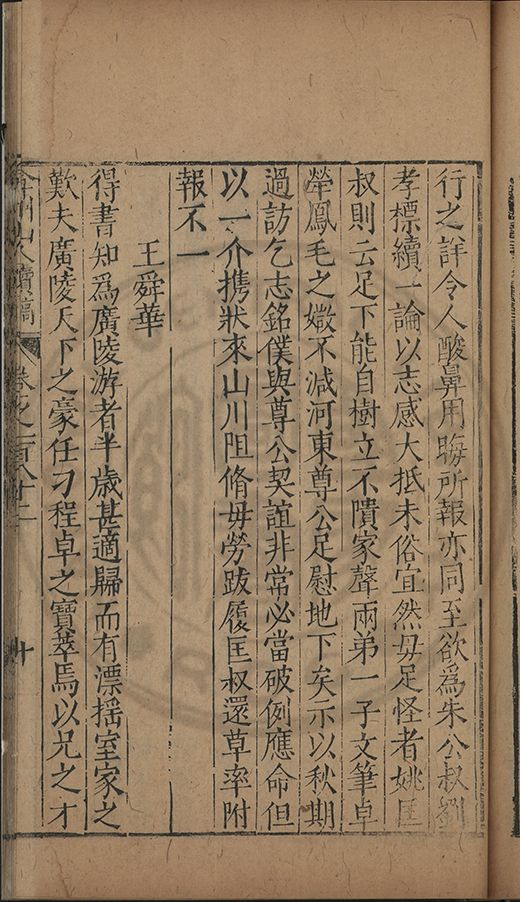 行之詳令人酸鼻用晦所報亦同至欲爲朱公叔劉
孝標續一論以志感大抵末俗宜然毋足怪者姚匡
叔則云足下能自樹立不隤家聲兩弟一子文筆卓
犖鳳毛之媺不減河東尊公足慰地下矣示以秋期
過訪乞志銘僕與尊公契誼非常必當破例應命但
以一介携狀來山川阻脩毋勞跋履匡叔還草率附
報不一
王舜華
得書知爲廣陵游者半歳甚適歸而有漂揺室家之
歎夫廣陵天下之豪任刁程卓之寶萃焉以兄之才
弇州山人續稿
卷之一百八十二